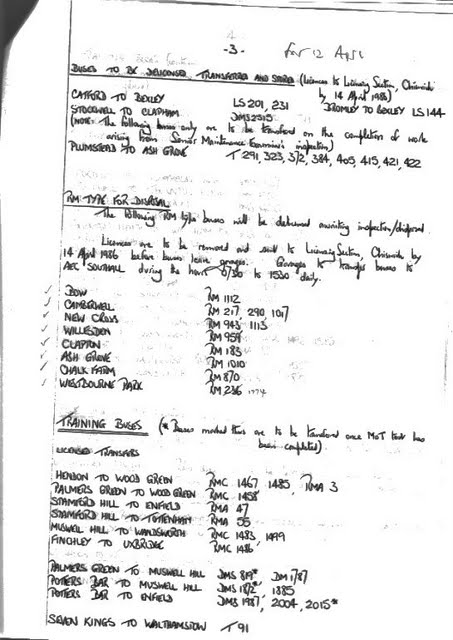 -3- for 12 April
BUSES TO BE DELICENSED, TRANSFERRED AND STORED (Licences to Licensing Section, Chiswick
by 14 April 1986)
CATFORD TO BEXLEY LS 201, 231 BROMLEY TO BEXLEY LS 144
STOCKWELL TO CLAPHAM DMS 2515
(NOTE: The following buses only are to be transferred on the completion of work
arising from Senior Maintenance Examiner's inspection)
PLUMSTEAD TO ASH GROVE T 291, 323, 372, 384, 405, 415, 421, 422
RM TYPE FOR DISPOSAL
The following RM type buses will be delicensed awaiting inspection/disposal.
Licences are to be removed and sent to Licensing Section, Chiswick by
14 April 1986 before buses leave garages. Garages to transfer buses to
AEC SOUTHALL during the hours 0730 to 1530 daily.
BOW RM 1112
CAMBERWELL RM 217 290 1017
NEW CROSS RM 943 1113
WILLESDEN RM 959
CLAPTON RM 183
ASH GROVE RM 1010
CHALK FARM RM 870
WESTBOURNE PARK RM 236
TRAINING BUSES (* Buses marked thus are to be transferred once MoT test has
been completed).
LICENSED TRANSFERS
HENDON TO WOOD GREEN RMC 1467 1485, RMA 3
PALMERS GREEN TO WOOD GREEN RMC 1458
STAMFORD HILL TO ENFIELD RMA 47
STAMFORD HILL TO TOTTENHAM RMA 55
MUSWELL HILL TO WANDSWORTH RMC 1483, 1499
FINCHLEY TO UXBRIDGE RMC 1486
PALMERS GREEN TO MUSWELL HILL DMS 819* DM 1787
POTTERS BAR TO MUSWELL HILL DMS 1872* 1885
POTTERS BAR TO ENFIELD DMS 1987, 2004, 2015*
SEVEN KINGS TO WALTHAMSTOW T 91